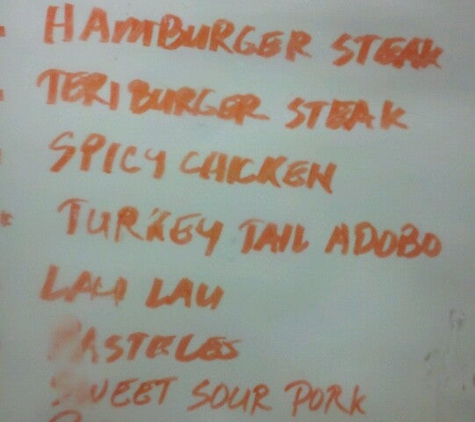 HAMBURGER STEAK
TERI BURGER STEAK
SPICY CHICKEN
TURKEY TAIL ADOBO
LAU LAU
PASTELES
SWEET SOUR PORK